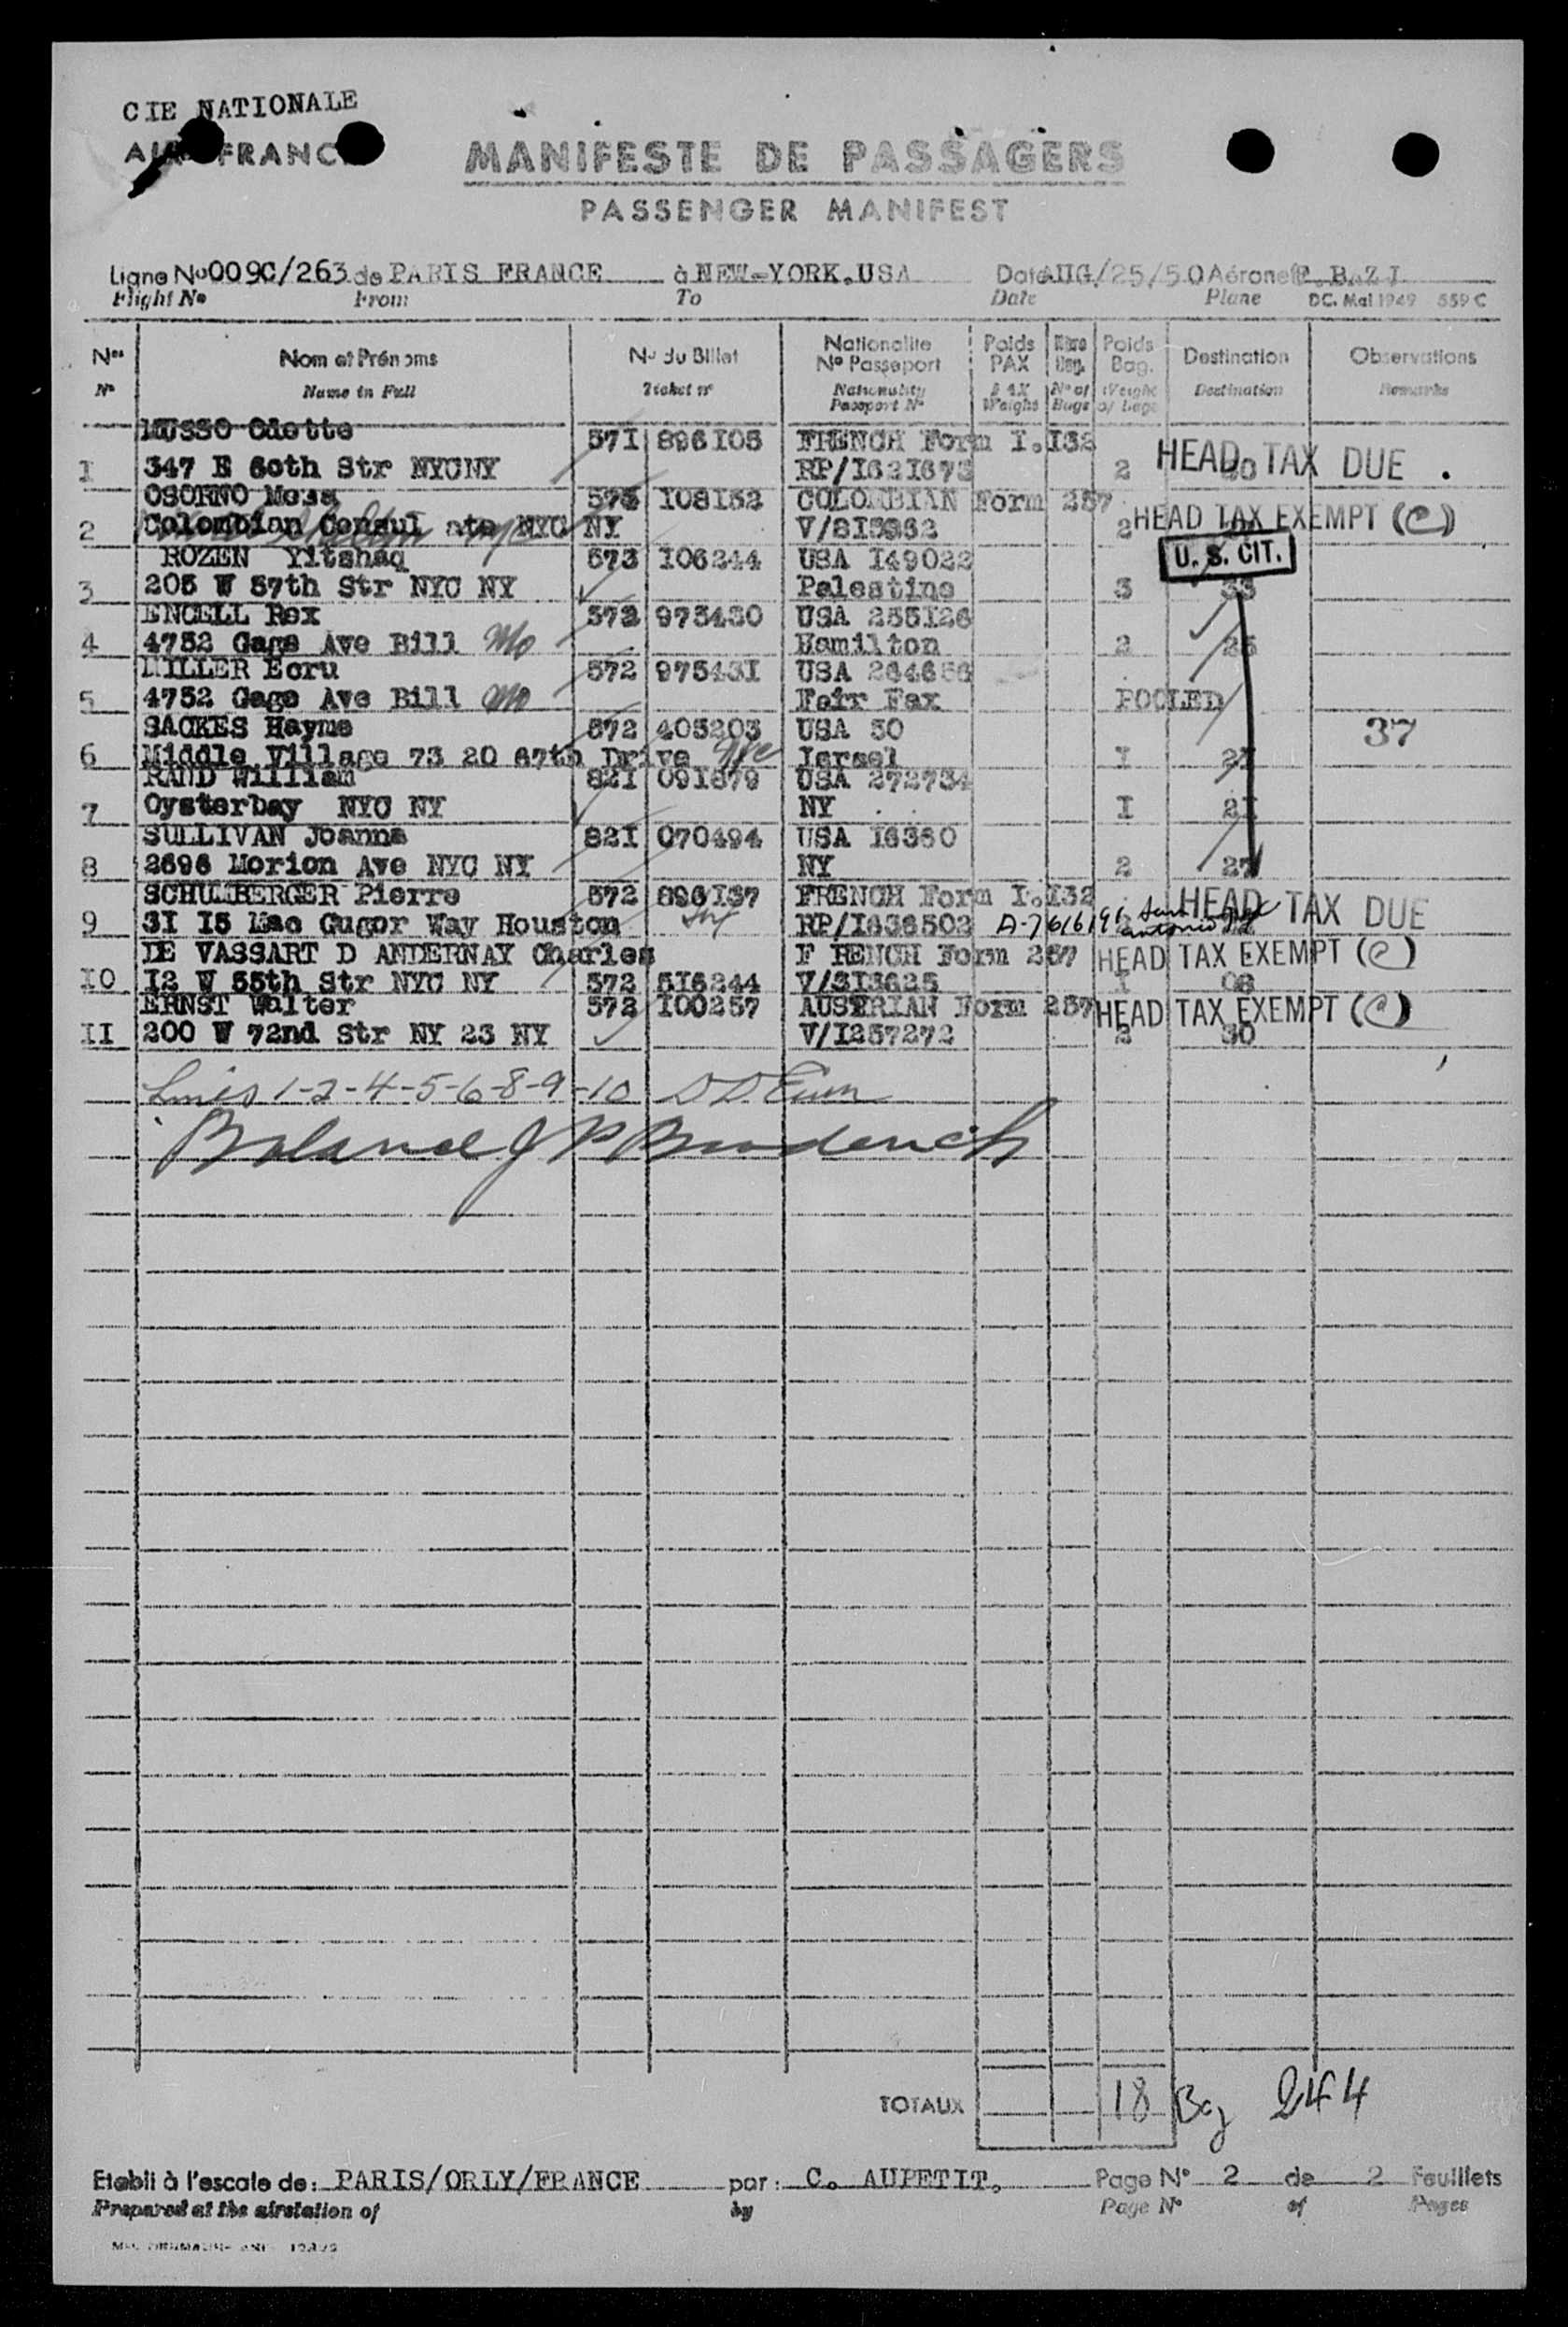 CIE NATIONALE
AIR FRANCE
MANIFESTE DE PASSAGERS
PASSENGER MANIFEST
Ligne No 009C/263 de PARIS FRANCE à NEW-YORK.USA Date AUG/25/50 Aéronef F.BAZI
Flight No From To Date Plane DC. Mai 1949 559 C
Nos Nom et Prénoms No du Billet Nationalite No Passeport Poids PAX Bag. Poids Bag. Destination Observations
No Name in Full Ticket no Nationality Passport No PAX Weighs No of Bags Weight of Bags Destination Remarks
MUSSO Odette 571 896105 FRENCH Form I.132
1 347 E 60th Str NYCNY RP/1621673 2 HEAD TAX DUE .
OSORNO Mosa 573 108152 COLOMBIAN Form 257
2 Colombian Consul ate NYC NY V/815962 2 HEAD TAX EXEMPT (C)
ROZEN Yitshaq 573 106244 USA 149022 U. S. CIT.
3 205 W 57th Str NYC NY Palestine 3 33
ENGELL Rex 572 975430 USA 255126
4 4752 Gage Ave Bill Mo Hamilton 2 25
MILLER Ecru 572 975431 USA 264656
5 4752 Gage Ave Bill Mo Fair Fax POOLED
SACKES Hayme 572 405203 USA 50 37
6 Middle Village 73 20 67th Drive Israel 1 21
RAND William 821 091679 USA 272734
7 Oysterbay NYC NY NY 1 21
SULLIVAN Joanna 821 070494 USA 16360
8 2696 Morion Ave NYC NY NY 2 27
SCHLUMBERGER Pierre 572 896137 FRENCH Form I.132
9 31 15 Mac Gugor Way Houston RP/1636502 A-7616191 San Antonio HEAD TAX DUE
DE VASSART D ANDERNAY Charles F RENCH Form 257 HEAD TAX EXEMPT (C)
10 12 W 55th Str NYC NY 572 516244 V/313625 1 08
ERNST Walter 572 100257 AUSTRIAN Form 257 HEAD TAX EXEMPT (C)
11 200 W 72nd Str NY 23 NY V/1257272 30
Lines 1-2-4-5-6-8-9-10
Balance J P
TOTAUX 18 Bag 244
Etabli à l'escale de: PARIS/ORLY/FRANCE par: C. AUPETIT. Page No 2 de 2 Feuillets
Prepared at the airstation of by Page No of Pages